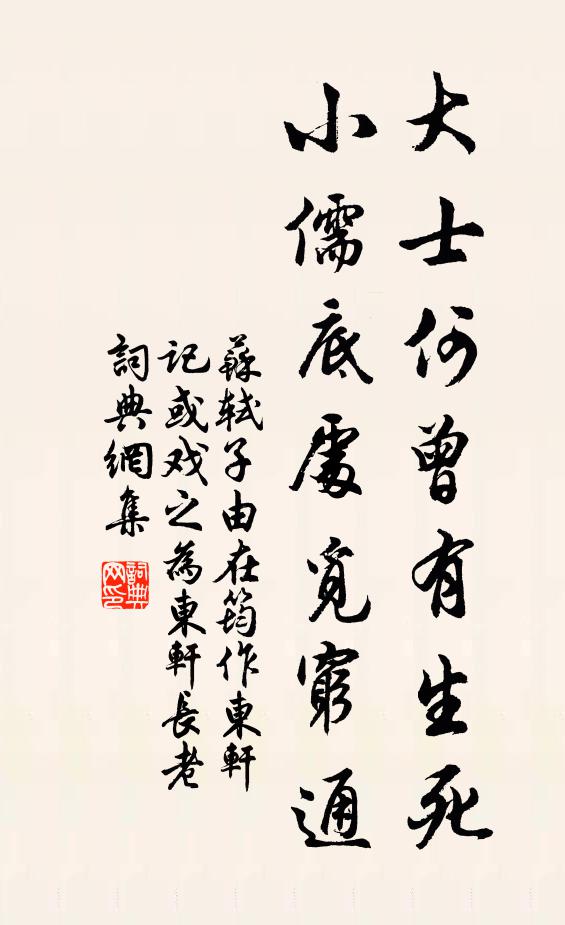 大士何曾有生死
小儒底處覓窮通
蘇軾子由在筠作東軒
記或戏之為東軒長老
詞典網集
詞典
网印